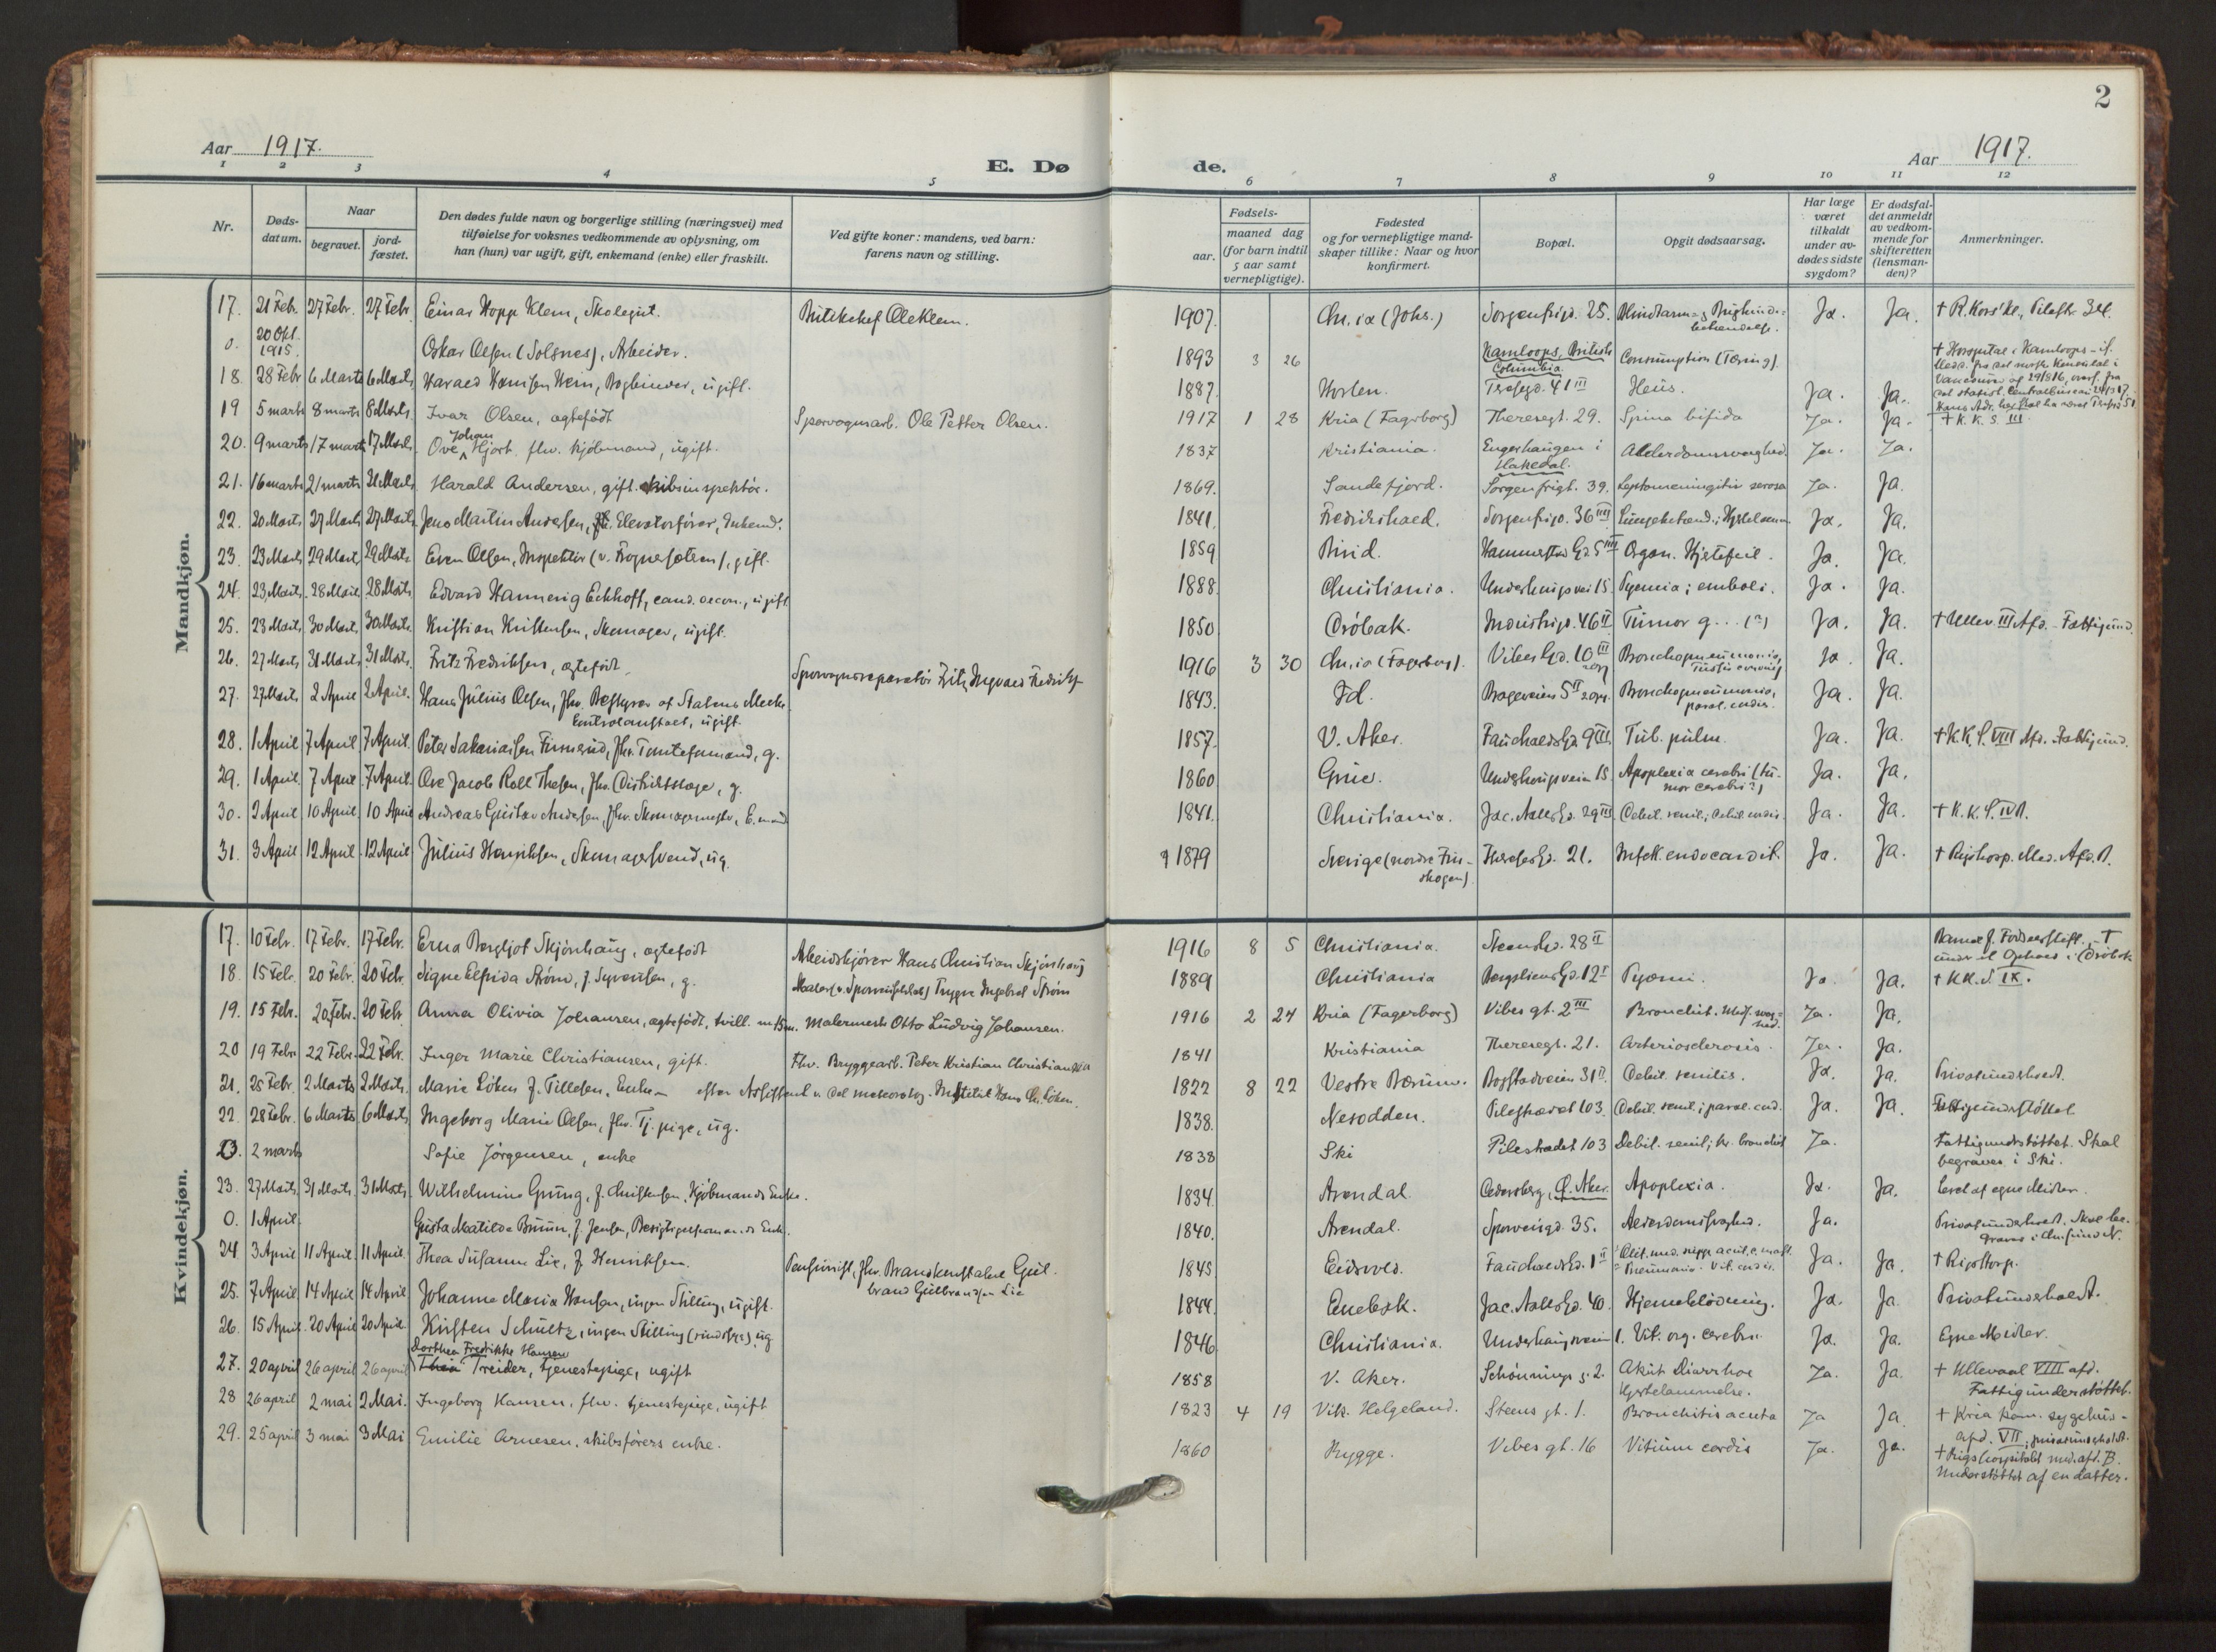 2
Aar 1917.
Aar 1917.
E. Dø
de.
1 2 3 4 5 6 7 8 9 10 11 12
Nr.
Døds-datum.
Naar
begravet.
jord-fæstet.
Den dødes fulde navn og borgerlige stilling (næringsvei) med
tilføielse for voksnes vedkommende av oplysning, om
han (hun) var ugift, gift, enkemand (enke) eller fraskilt.
Ved gifte koner: mandens, ved barn:
farens navn og stilling.
Fødsels-
aar. maaned dag
(for barn indtil
5 aar samt
vernepligtige).
Fødested
og for vernepligtige mand-
skaper tillike: Naar og hvor
konfirmert.
Bopæl.
Opgit dødsaarsag.
Har læge
været
tilkaldt
under av-
dødes sidste
sygdom?
Er dødsfal-
det anmeldt
av vedkom-
mende for
skifteretten
(lensman-
den)?
Anmerkninger.
Mandkjøn.
17. 21 Febr. 27 Febr. 27 Febr. Einar Hopp Klem, Skolegut. Ole Klem. 1907. Ch.ia (Johs.) Sorgenfrigd. 25. Ja. Ja. + R. Kors' kl., Pilestr.
0. 20 Okt. 1915. Oskar Olsen (Solsnes), Arbeider. 1893 3 26 Kamloops, British Columbia. Consumption (Tæring). + Hospital i Kamloops
18. 28 Febr 6 Marts 6 Marts Harald Hansen Hein, Bogbinder, ugift. 1887. Horten. Theresegd. 41 III Ileus. Ja. Ja.
19 5 marts 8 marts 8 Marts. Ivar Olsen, ægtefødt Sporvognsarb. Ole Petter Olsen. 1917 1 28 Kria (Fagerborg) Theresegt. 29. Spina bifida Ja. Ja. + K. K. S. III
20. 9 marts 17 marts 17 Marts. Ove Johan Hjort, fhv. kjøbmand, ugift. 1837 Kristiania. Engerhaugen i Hakedal. Alderdomssvaghed. Ja. Ja.
21. 16 marts 21 marts 21 Marts Harald Andersen, gift. skibsinspektør. 1869. Sandefjord. Sorgenfrigt. 39. Leptomeningitis serosa Ja. Ja.
22. 20 Marts 27 Marts 27 Marts Jens Martin Andersen, fh. Elevatorfører, Enkemd. 1841. Fredrikshald. Sorgenfrigd. 36 IIII Ja. Ja.
23. 23 Marts 29 Marts 29 Marts Even Olsen, Inspektør (v. Frognersæteren), gift. 1859 Biri d. Organ. Hjertefeil. Ja. Ja.
24. 23 Marts 28 Marts 28 Marts Edvard Hannevig Eckhoff, cand. oecon., ugift. 1888. Christiania. Underhaugsvei 15. Pyemia; emboli. Ja. Ja.
25. 23 Marts 30 Marts 30 Marts Kristian Kristensen, Skomager, ugift. 1850. Drøbak. Industrigd. 46 II Tumor g... (?) Ja. Ja. + Ullev. III Afd. - Fattigund.
26. 27 Marts 31 Marts 31 Marts. Fritz Fredriksen, ægtefødt Sporvognsreparatør Fritz Ingvald Fredriks 1916 3 30 Ch.ia (Fagerborg). Vibes Gd. 10 III Bronchopneumonia, Ja. Ja.
27. 27 Marts 2 April 2 April. Hans Julius Olsen, fhv. Bestyrer af Statens Mælke-
Kontrolanstalt, ugift. 1843. Id. 5 II Bronchopneumonia, paral. cordis. Ja. Ja.
28. 1 April 7 April 7 April. Peter Sakariasen Furuerud, fhv. Tomtformand, g. 1857. V. Aker. Fauchalds Gd. 9 III Tub. pulm. Ja. Ja. + K. K. S. VIII Afd. Fattigund.
29. 1 April 7 April 7 April. Ove Jacob Roll Thesen, fhv. Distriktslæge, g. 1860 Grue. Underhaugsveien 15 Apoplexia cerebri (tu-
mor cerebri?) Ja. Ja.
30. 2 April 10 April 10 April Andreas Gustav Andersen, fhv. Skomagermester, E.mand 1841. Christiania. Jac. Aalls Gd. 29 III Debil. senil.; debil. cordis. Ja. Ja. + K. K. S. IV A.
31. 3 April 12 April 12 April Julius Henriksen, Skomagersvend, ug. 1879 Sverige (nordre Fin-
skogen) Therese Gd. 21. Infekt. endocardit. Ja. Ja. + Rigshosp. Med. Afd. B.
Kvindekjøn.
17. 10 Febr. 17 Febr. 17 Febr. Erna Bergljot Skjønhaug, ægtefødt Arbeidskjører Hans Christian Skjønhaug 1916 8 5 Christiania. Steens Gd. 28 II
18. 15 Feb. 20 Febr. 20 Febr. Signe Elfrida Strøm, f. Syversen, g. Maler (v. Sporveiselskab) Trygve Ingebret Strøm 1889 Christiania Bergsliens Gd. 12 I Pyæmi. Ja. Ja. + K.K.S. IX.
19. 15 Febr. 20 Febr. 20 Febr Anna Olivia Johansen, ægtefødt, tvill. Malermester Otto Ludvig Johansen. 1916 2 24 Kria (Fagerborg) Vibes gt. 2 III Bronchit. Ja. Ja.
20 19 Febr 22 Febr. 22 Febr. Inger Marie Christiansen, gift. Fhv. Bryggearb. Peter Kristian Christiansen 1841 Kristiania Theresegt. 21. Arteriosclerosis. Ja. Ja.
21. 25 Febr. 2 Marts 2 Marts. Marie Løken f. Tillesen. Enke efter Assistent v. det meteorolog. Institut Hans Løken. 1822 8 22 Vestre Bærum. Bogstadveien 31 II. Debil. senilis. Ja. Ja. Privatunderholdt.
22. 28 Febr. 6 Marts 6 Marts. Ingeborg Marie Olsen, fhv. Tj. pige, ug. 1838. Nesodden. Pilestrædet 103. Debil. senil; paral. cord. Ja. Ja. Fattigunderstøttet
2 marts Sofie Jørgensen, enke 1838 Ski Pilestrædet 103 Debil. senil; Ja. Fattigunderstøttet. Skal
begraves i Ski.
23. 27 Marts 31 Marts 31 Marts. Wilhelmine Grung, f. Christensen. Kjøbmands Enke. 1834. Arendal. Cedersberg, Ø. Aker. Apoplexia. Ja. Ja. Levet af egne Midler.
0. 1 April. Gusta Matilde Bruun, f. Jensen, Enke. 1840. Arendal. Sporveisgd. 35. Alderdomssvaghed. Ja.
24 3 April 11 April 11 April. Thea Susanne Lie, f. Henriksen. Pensionist, fhv. Brandkonstabel Gul-
brand Gulbrandsen Lie 1845. Eidsvold. Fauchalds Gd. 1 II Ja. Ja. + Rigshosp.
25. 7 April 14 April 14 April Johanne Maria Hansen, ingen Stilling, ugift. 1844. Enebak. Jac. Aalls Gd. 40. Hjerneblødning. Ja. Ja. Privatunderholdt.
26. 15 April 20 April 20 April Kirsten Schultz, ingen Stilling (sindssyg), ug 1846. Christiania. Underhaugsveien 1. Vit. org. cerebri. Ja. Ja. Egne Midler.
27. 20 april 26 april 26 april Dorthea Fredrikke Hansen
Thea Treider, tjenestepige, ugift 1858 V. Aker. Schønnings g. 2. Akut Diarrhoe
Hjertelammelse. Ja. Ja. + Ullevaal VIII afd.
Fattigunderstøttet.
28 26 april 2 mai 2 Mai. Ingeborg Hansen, fhv. tjenestepige, ugift 1823 4 19 Vik. Helgeland. Steens gt. 1. Bronchitis acuta Ja Ja. + Kria kom. sygehus-
afd. VII;
29. 25 april 3 mai 3 Mai Emilie Arnesen, skibsførers enke. 1860 Rygge. Vibes gt. 16 Vitium cordis Ja. Ja. + Rigshospitalet med. afd. B.
Understøttet af en datter.